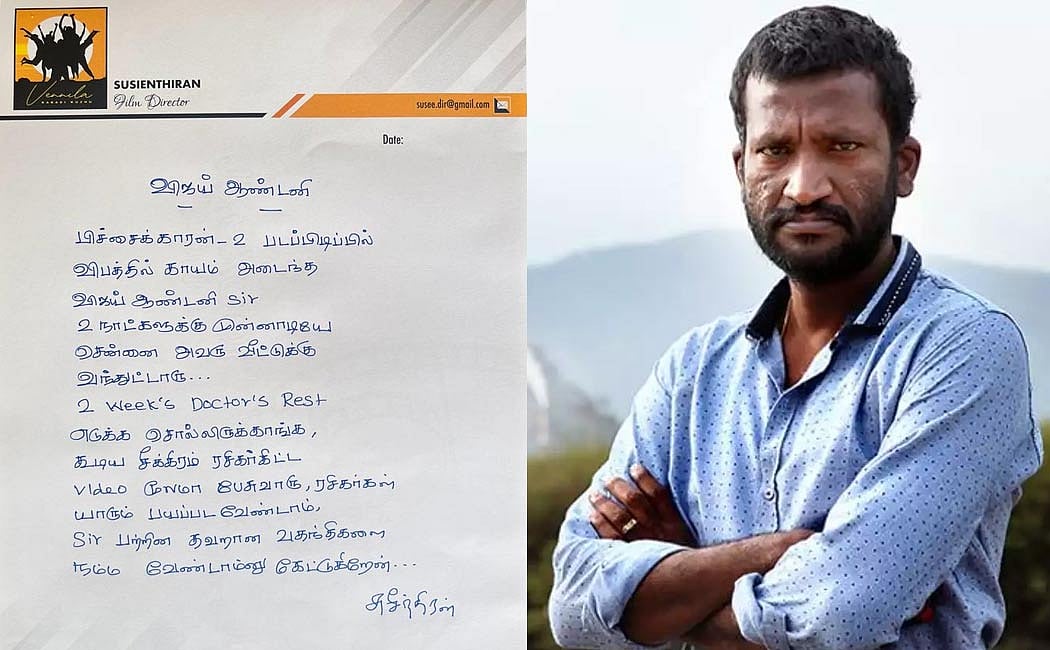 Vennila
KABADI KUZHU
SUSIENTHIRAN
Film Director
susee.dir@gmail.com
Date:
விஜய் ஆண்டனி
பிச்சைக்காரன்-2 படப்பிடிப்பில்
விபத்தில் காயம் அடைந்த
விஜய் ஆண்டனி Sir
2 நாட்களுக்கு முன்னாடியே
சென்னை அவரு வீட்டுக்கு
வந்துட்டாரு...
2 Week's Doctor's Rest
எடுக்க சொல்லிருக்காங்க,
கூடிய சீக்கிரம் ரசிகர்கிட்ட
Video மூலமா பேசுவாரு, ரசிகர்கள்
யாரும் பயப்பட வேண்டாம்,
Sir பற்றின தவறான வதந்திகளை
நம்ம வேண்டாம்னு கேட்டுகிறேன்...
சுசீந்திரன்